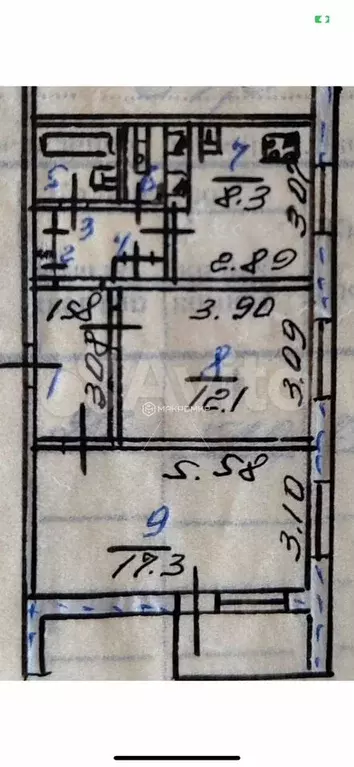 5
6
7
8.3
3.07
3
2
4
2.89
158
3.90
1
308
8
12.1
3.09
Avito
МАКРОМИР
5.58
9
17.3
3.10